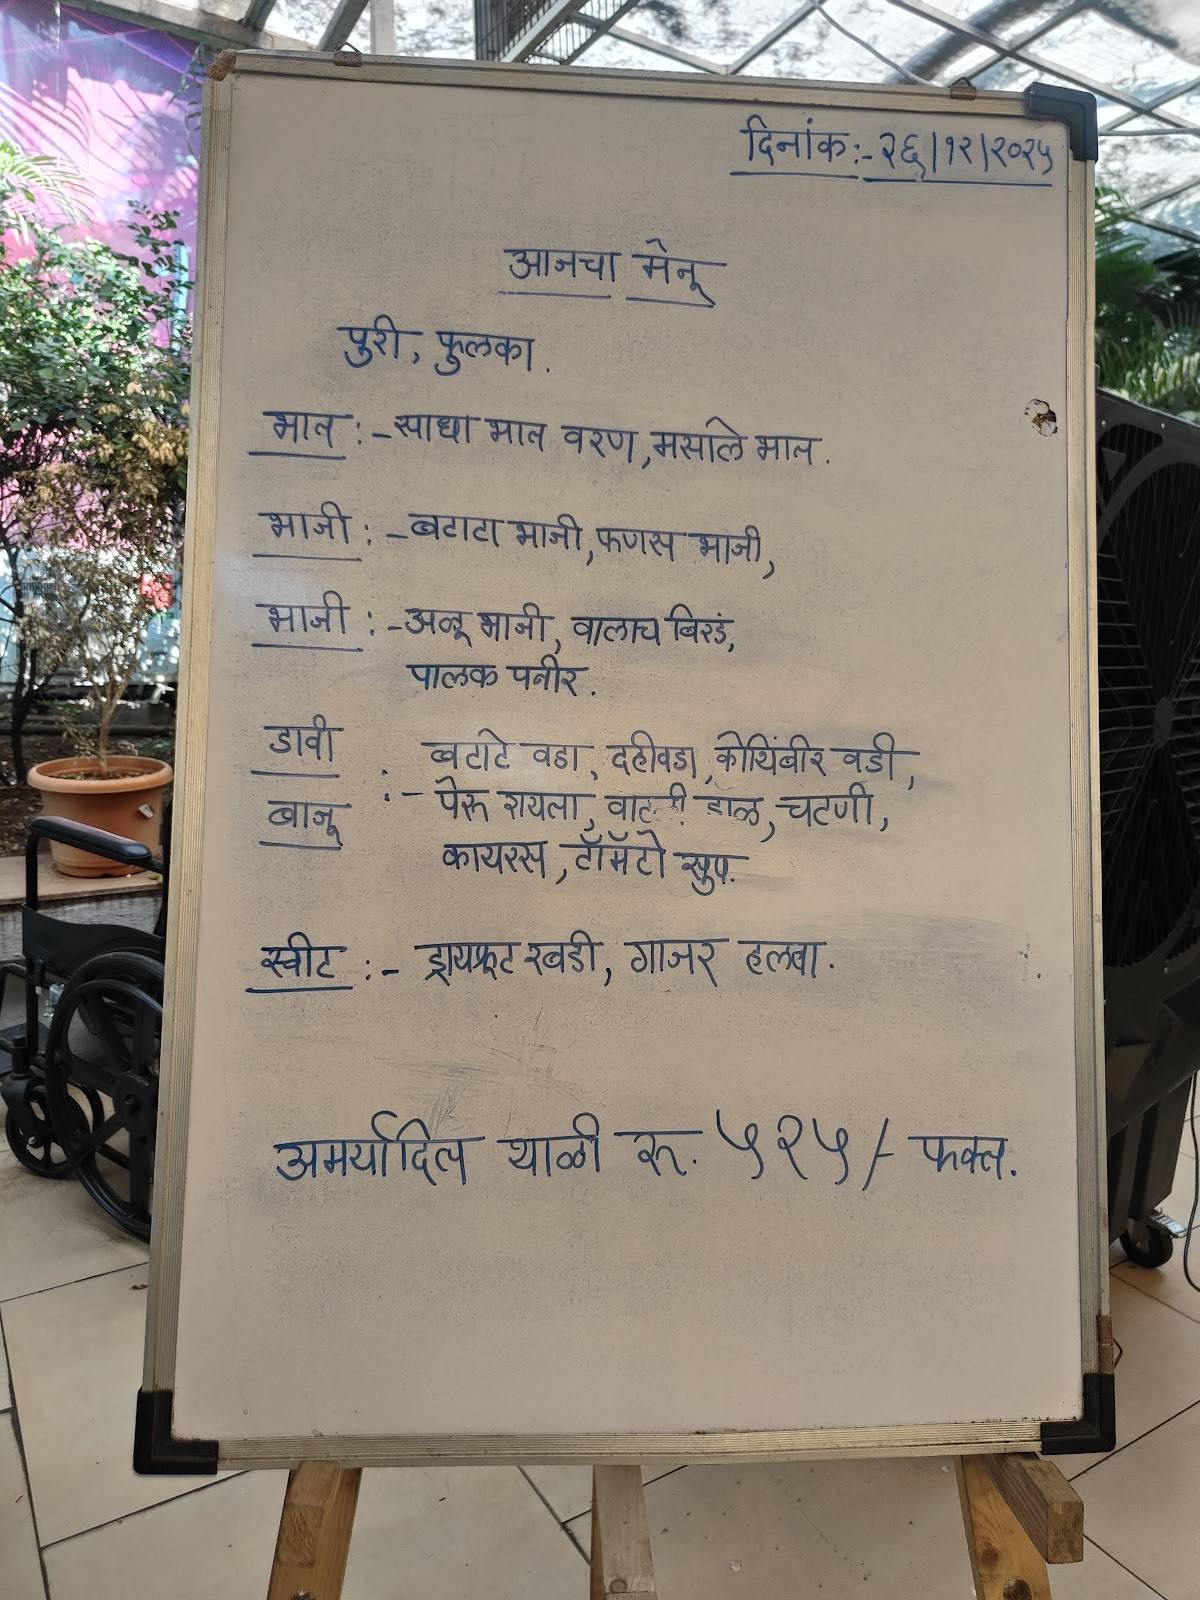 दिनांक:- २६/१२/२०२५
आजचा मेनू
पुरी, फुलका.
भात :- साधा भात वरण, मसाले भात.
भाजी :- बटाटा भाजी, फणस भाजी,
भाजी :- अळू भाजी, वालाच बिरडं,
पालक पनीर.
डावी बाजू :- बटाटे वडा, दहीवडा, कोथिंबीर वडी,
पेरू रायता, डाळ, चटणी,
कायरस, टॉमॅटो सुप.
स्वीट :- ड्रायफ्रूट रबडी, गाजर हलवा.
अमर्यादित थाळी रू. ५२५/- फक्त.